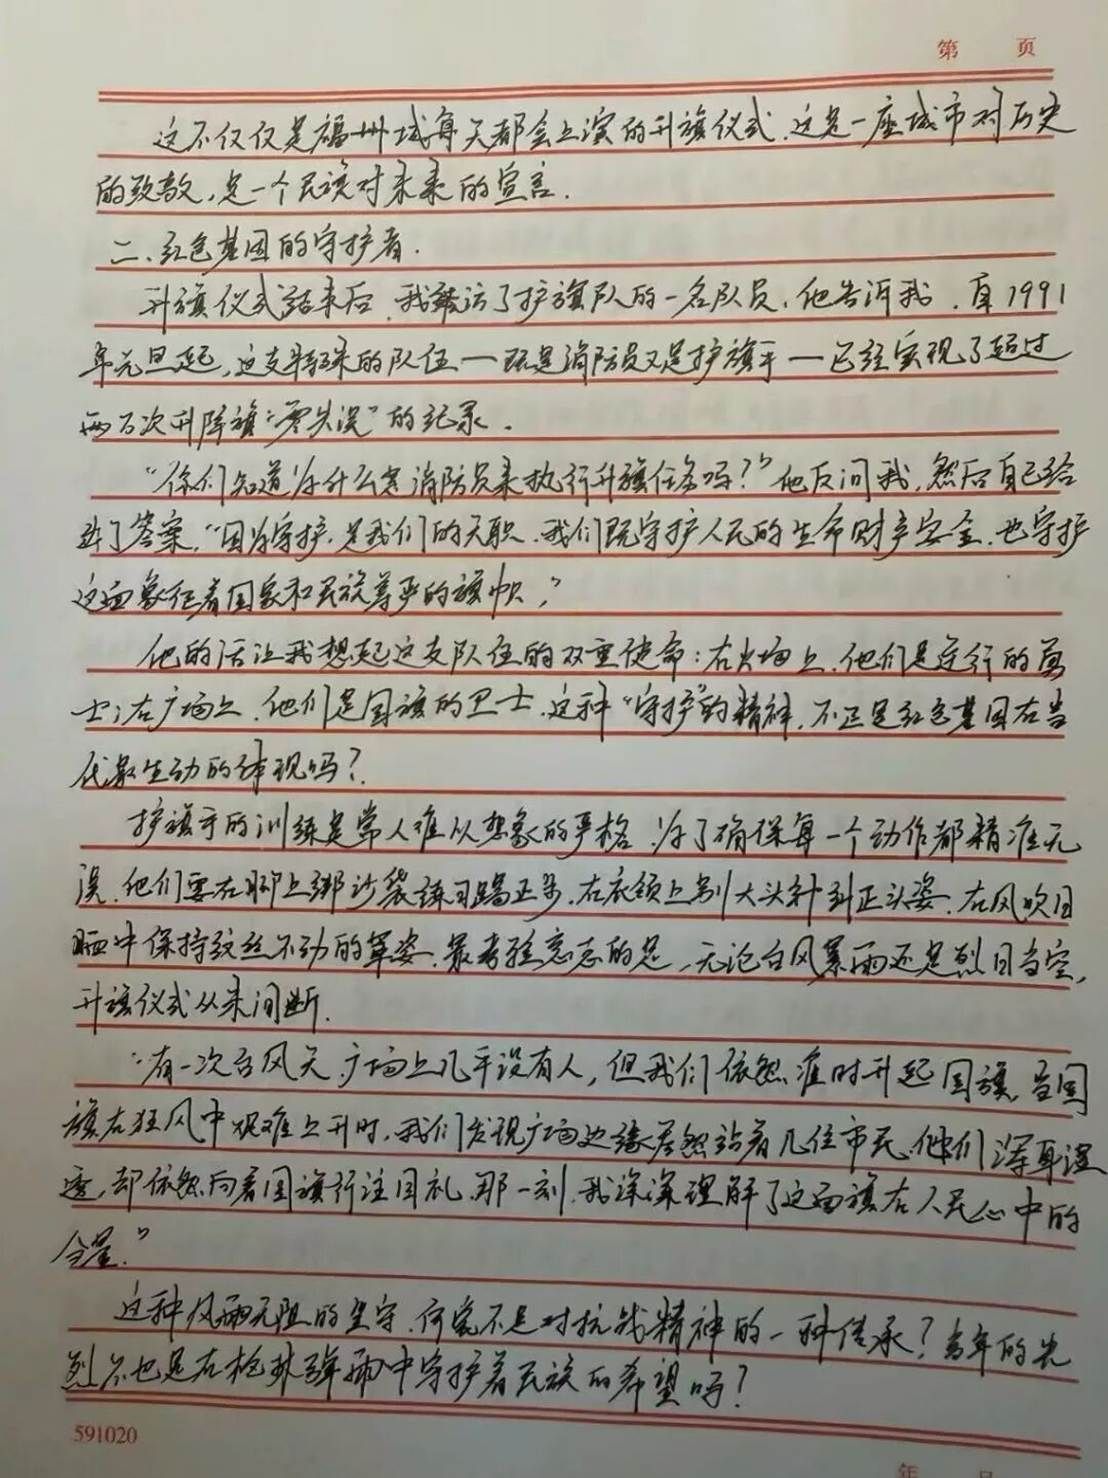 第 页
这不仅仅是福州城每天都会上演的升旗仪式，这是一座城市对历史
的致敬，是一个民族对未来的宣言．
二、红色基因的守护者．
升旗仪式结束后，我采访了护旗队的一名队员，他告诉我，自1991
年元旦起，这支特殊的队伍——既是消防员又是护旗手——已经实现了超过
两万次升降旗“零失误”的纪录．
“你们知道为什么要消防员来执行升旗任务吗？”他反问我，然后自己给
出了答案，“因为守护，是我们的天职．我们既守护人民的生命财产安全，也守护
这面象征着国家和民族尊严的旗帜．”
他的话让我想起这支队伍的双重使命：在火场上，他们是逆行的勇
士；在广场上，他们是国旗的卫士．这种“守护”的精神，不正是红色基因在当
代最生动的体现吗？
护旗手的训练是常人难以想象的严格．为了确保每一个动作都精准无
误，他们要在脚上绑沙袋练习踢正步，在衣领上别大头针纠正头姿，在风吹日
晒中保持纹丝不动的军姿．最考验意志的是，无论台风暴雨还是烈日当空，
升旗仪式从未间断．
“有一次台风天，广场上几乎没有人，但我们依然准时升起国旗．当国
旗在狂风中艰难上升时，我们发现广场边缘居然站着几位市民，他们浑身湿
透，却依然向着国旗行注目礼．那一刻，我深深理解了这面旗在人民心中的
分量．”
这种风雨无阻的坚守，何尝不是对抗战精神的一种传承？当年的先
烈，不也是在枪林弹雨中守护着民族的希望吗？
591020
年 月